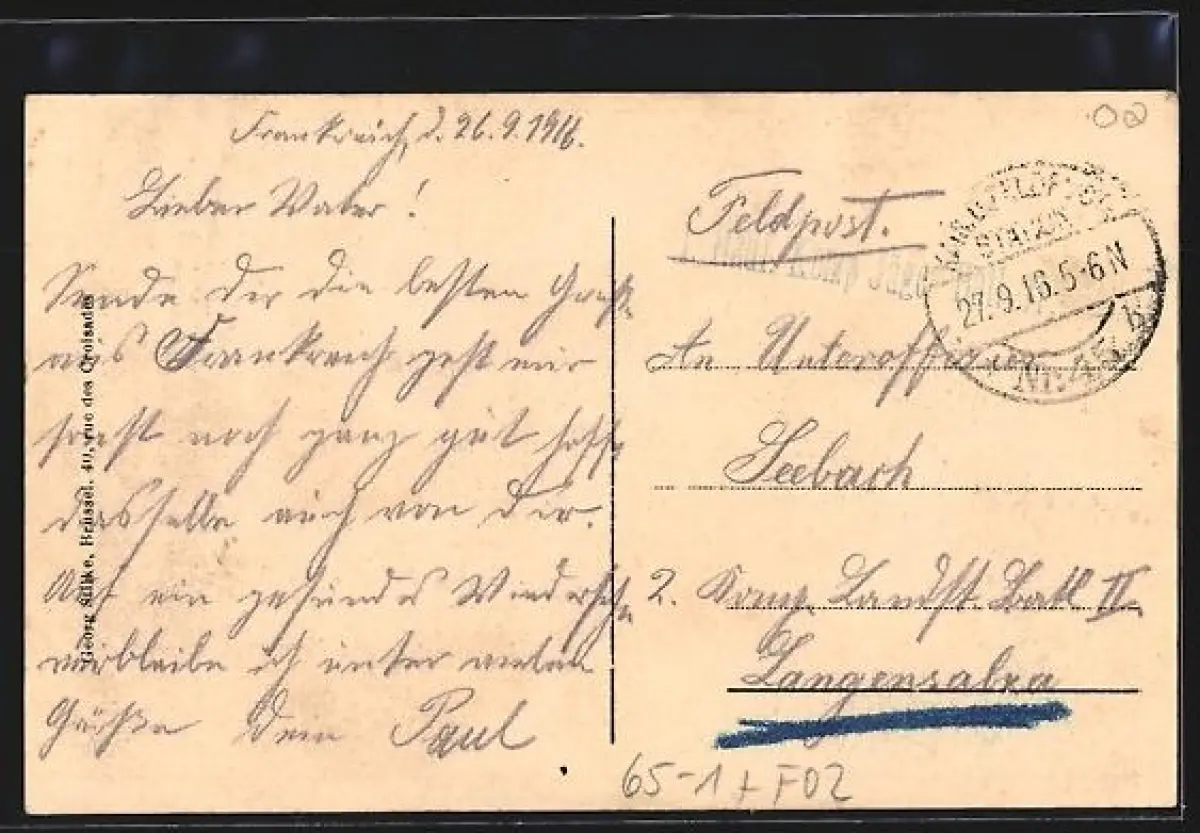 Frankreich, d. 26.9.1916.
Lieber Vater!
Sende Dir die besten Grüße
aus Frankreich geht mir
sonst noch ganz gut hoffe
dasselbe auch von Dir.
Auf ein gesundes Wiedersehn
verbleibe ich unter vielen
Grüßen Dein Paul
Georg Stilke, Brüssel, 40, rue des Croisades
Feldpost.
27.9.16.5-6N
An Unteroffizier
Seebach
2. Komp. Landst. Batl. II.
Langensalza
65-1 + F02